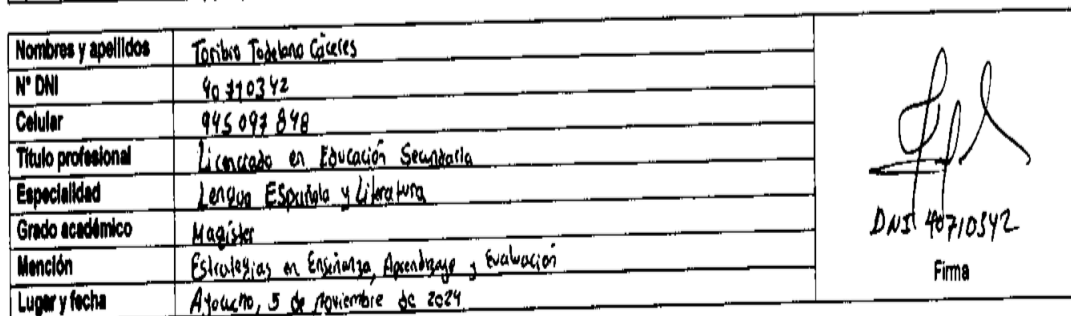 Nombres y apellidos Toribio Todelano Cáceres
N° DNI 40710342
Celular 945 097 848
Título profesional Licenciado en Educación Secundaria
Especialidad Lengua Española y Literatura
Grado académico Magíster
Mención Estrategias en Enseñanza, Aprendizaje y Evaluación
Lugar y fecha Ayacucho, 5 de noviembre de 2024
DNI 40710342
Firma